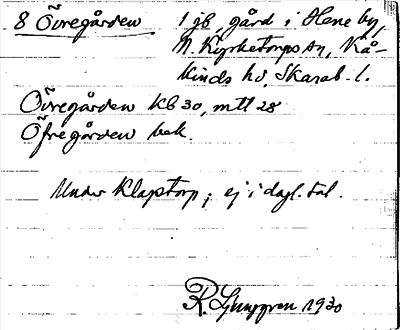 8 Övregården 1 jb, gård i Hene by,
N. Kyrketorps sn, Kå-
kinds hd, Skarab. l.
Övregården Kb 30, mtl 28
Öfregården bek.
Under Klaptorp; ej i dagl. tal.
R. Ljunggren 1930